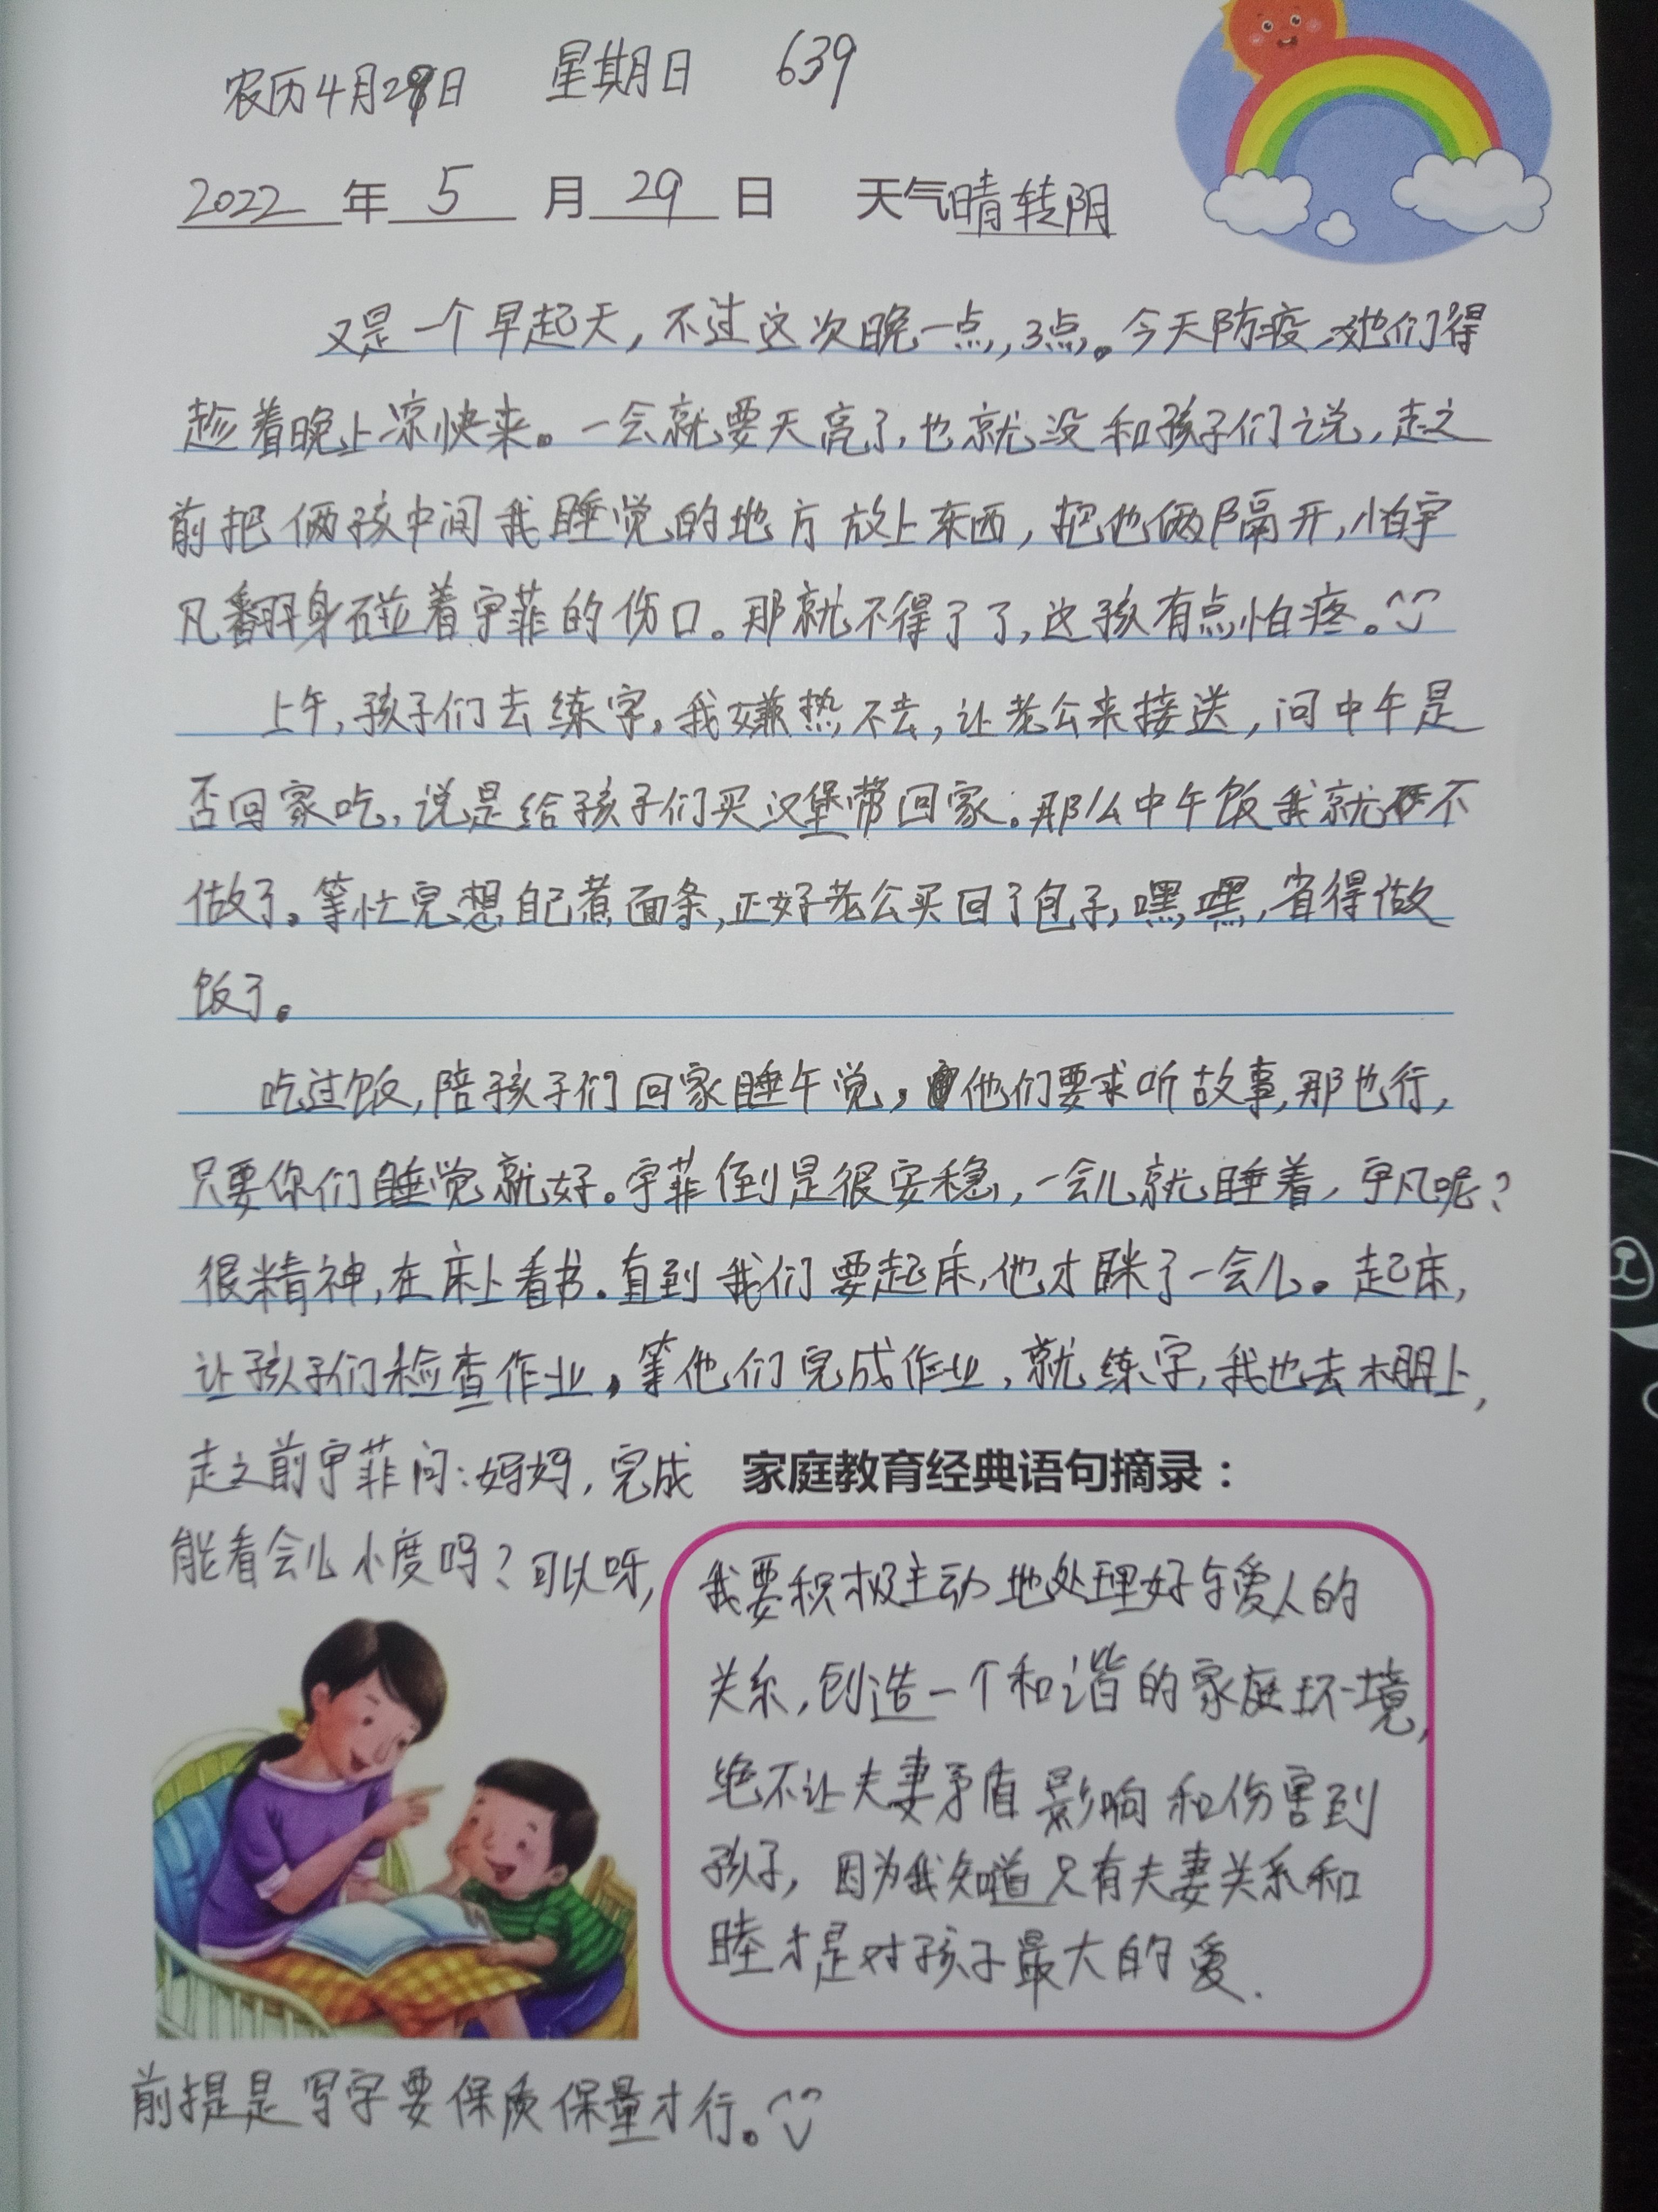 农历4月29日 星期日 639
2022年5月29日 天气晴转阴
又是一个早起天，不过这次晚一点，3点。今天防疫，她们得
趁着晚上凉快来。一会就要天亮了，也就没和孩子们说，走之
前把俩孩中间我睡觉的地方放上东西，把他俩隔开，怕宇
凡翻身碰着宇菲的伤口。那就不得了了，这孩有点怕疼。
上午，孩子们去练字，我嫌热不去，让老公来接送，问中午是
否回家吃，说是给孩子们买汉堡带回家。那么中午饭我就不
做了。等忙完想自己煮面条，正好老公买回了包子，嘿，嘿，省得做
饭了。
吃过饭，陪孩子们回家睡午觉，他们要求听故事，那也行，
只要你们睡觉就好。宇菲倒是很安稳，一会儿就睡着，宇凡呢？
很精神，在床上看书。直到我们要起床，他才眯了一会儿。起床，
让孩子们检查作业，等他们完成作业，就练字，我也去棚上，
走之前宇菲问：妈妈，完成
能看会儿小度吗？可以呀，
家庭教育经典语句摘录：
我要积极主动地处理好与爱人的
关系，创造一个和谐的家庭环境，
绝不让夫妻矛盾影响和伤害到
孩子，因为我知道只有夫妻关系和
睦才是对孩子最大的爱.
前提是写字要保质保量才行。